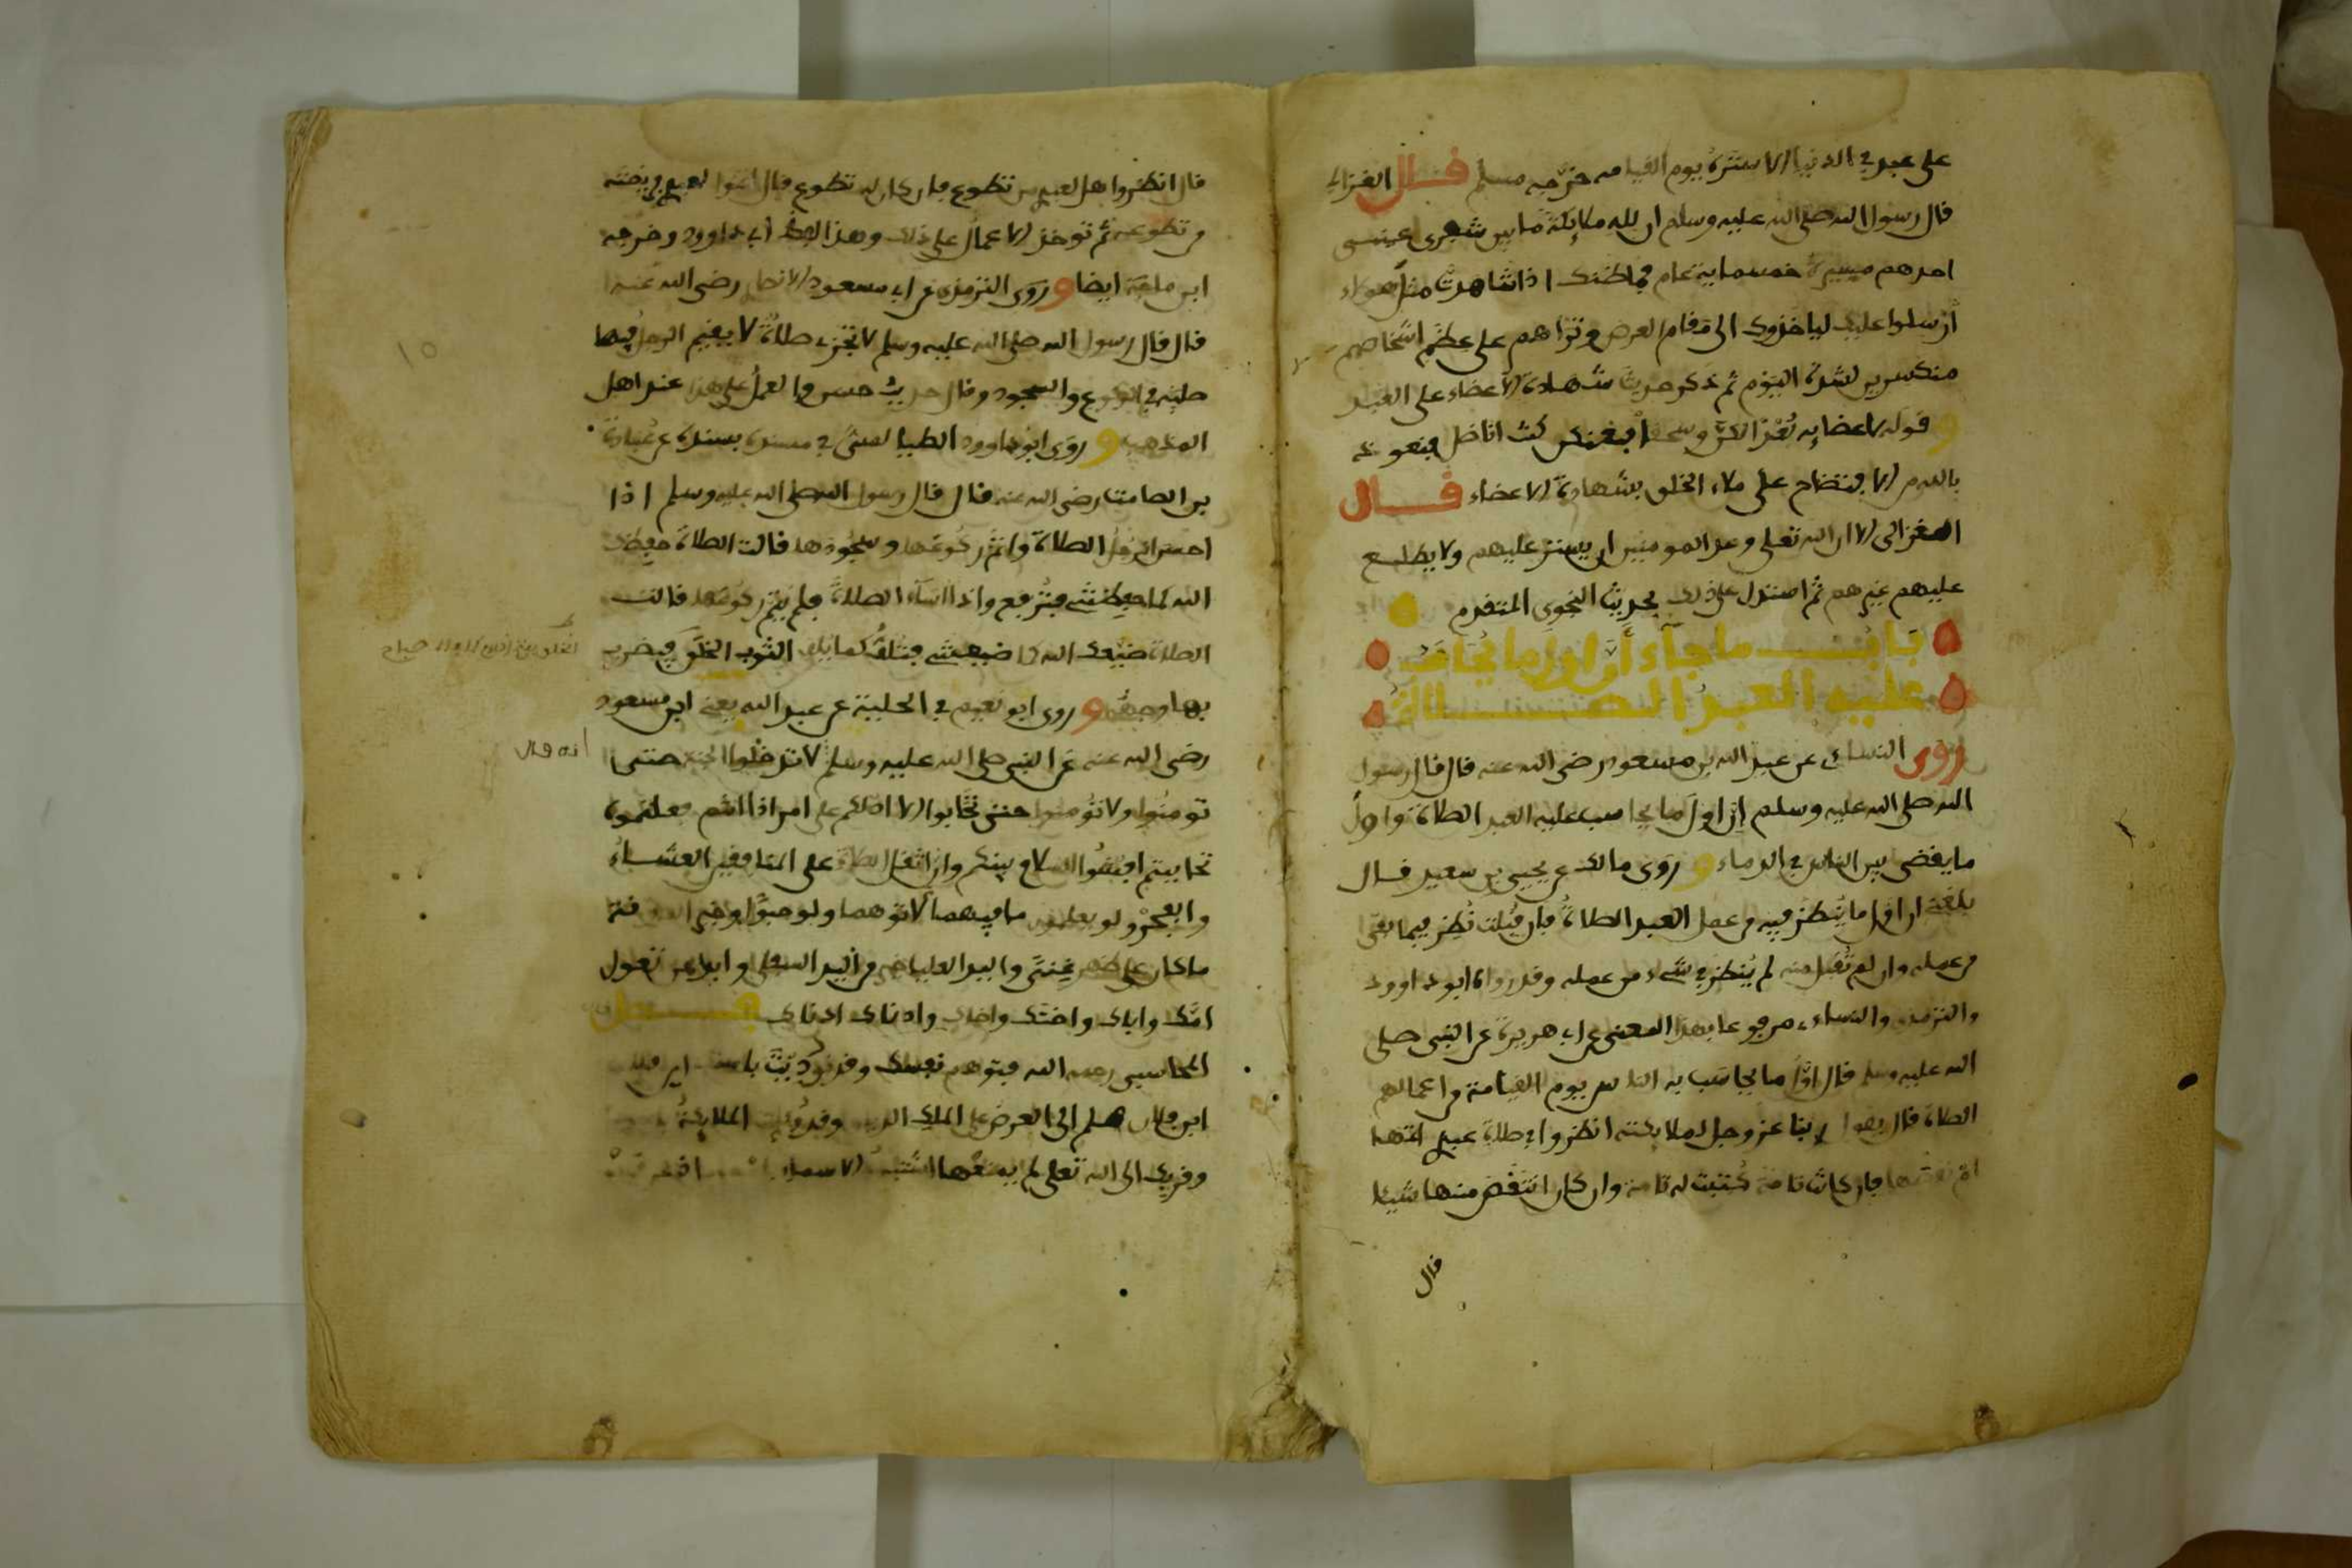 على عبد في الدنيا الا ستره يوم القيامه خرجه مسلم قال الغزالي
قال رسول الله صلى الله عليه وسلم ان لله ملايكة ما بين شفري عيني
احدهم مسيرة خمسماية عام فما ظنك اذا شاهدت مثل هولاء
أرسلوا عليك لياخذوك الى مقام العرض وتراهم على عظم اشخاصهم
منكسرين لشدة اليوم ثم ذكر حديث شهادة الاعضاء على العبد
و قوله لاعضايه بعدا لكن وسحقا فعنكن كنت اناضل فنعوذ
بالله من الافتضاح على ملاء الخلق بشهادة الاعضاء قال
الغزالي الا ان الله تعلى وعد المومنين ان يستر عليهم ولا يطلع
عليهم غيرهم ثم استدل على ذلك بحديث النجوى المتقدم
باب ما جاء أن اول ما يحاسب
عليه العبد الصلاة
روى النساي عن عبد الله بن مسعود رضي الله عنه قال قال رسول
الله صلى الله عليه وسلم إن اول ما يحاسب عليه العبد الصلاة واول
ما يقضى بين الناس في الدماء و روى مالك عن يحيى بن سعيد قال
بلغني ان اول ما ينظر فيه من عمل العبد الصلاة فان قبلت نظر فيما بقي
من عمله وان لم تقبل منه لم ينظر في شيء من عمله وقد رواه ابو داوود
والترمذي والنساي مرفوعا بهذا المعنى عن ابي هريرة عن النبي صلى
الله عليه وسلم قال اول ما يحاسب به الناس يوم القيامة من اعمالهم
الصلاة قال يقول ربنا عز وجل لملايكته انظروا في صلاة عبدي اتمها
ام نقصها فان كانت تامة كتبت له تامة وان كان انتقص منها شيئا
قال
قال انظروا هل لعبدي من تطوع فان كان له تطوع قال اتموا لعبدي فريضته
من تطوعه ثم توخذ الاعمال على ذلك وهذا لفظ أبي داوود وخرجه
ابن ماجة ايضا و روى الترمذي عن ابي مسعود الانصاري رضي الله عنه
قال قال رسول الله صلى الله عليه وسلم لا تجزء صلاة لا يقيم الرجل فيها
صلبه في الركوع والسجود وقال حديث حسن والعمل على هذا عند اهل
المذهب و روى ابو داوود الطيالسي في مسنده بسنده عن عبادة
بن الصامت رضي الله عنه قال قال رسول الله صلى الله عليه وسلم اذا
احسن الرجل الصلاة واتم ركوعها وسجودها قالت الصلاة حفظك
الله كما حفظتني فترفع واذا اساء الصلاة فلم يتم ركوعها قالت
الصلاة ضيعك الله كما ضيعتني فتلف كما يلف الثوب الخلق فيضرب
بها وجهه و روى ابو نعيم في الحلية عن عبد الله يعني ابن مسعود
رضي الله عنه عن النبي صلى الله عليه وسلم لا تدخلوا الجنة حتى
تومنوا ولا تومنوا حتى تحابوا الا ادلكم على امر اذا انتم فعلتموه
تحاببتم افشوا السلام بينكم وان اثقل الصلاة على المنافقين العشاء
والفجر ولو يعلمون ما فيهما لاتوهما ولو حبوا وخير الصدقة
ما كان على ظهر غنى واليد العليا خير من اليد السفلى وابدا بمن تعول
امك واباك واختك واخاك وادناك ادناك
المحاسبي رحمه الله فتوهم نفسك وقد نوديت باسمك اين فلان
ابن فلان هلم الى العرض على الملك الديان وقد وكلت الملايكة
وقربك الى الله تعلى لم يمنعها اشتباه الاسماء
١٥